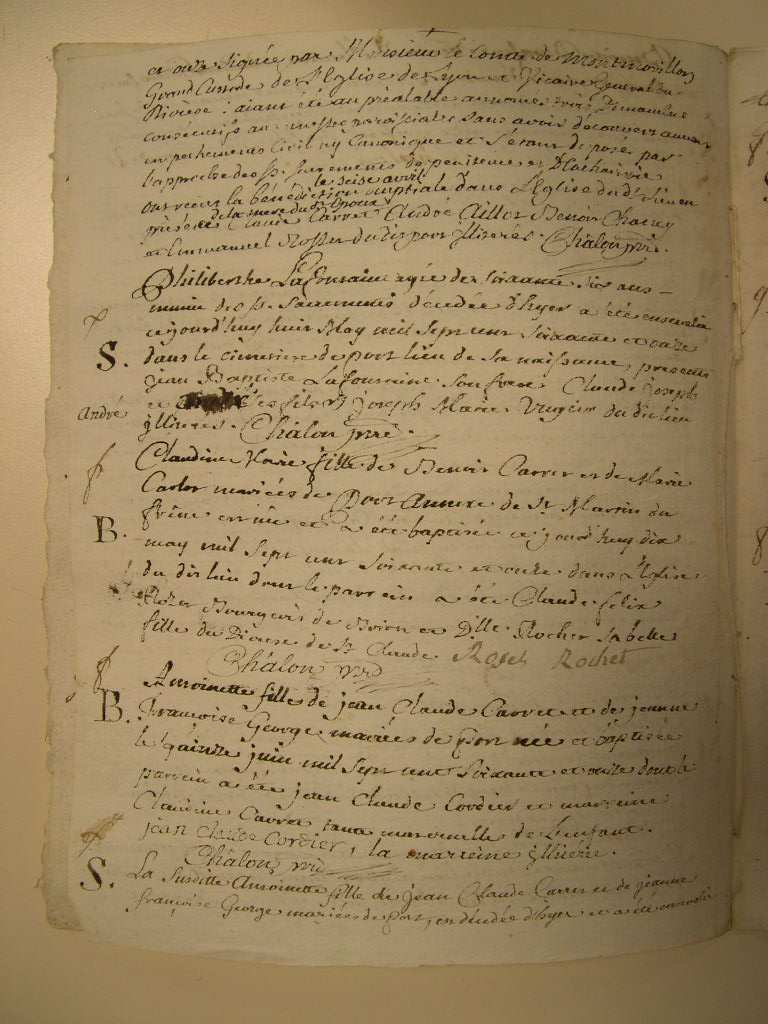 et ourt signée par Monsieur le Comte de Montmorillon
Grand Custode de l'Eglise de Lyon et Vicaire General du
Diocese: aiant été au préalable annoncés trois Dimanches
consecutifs aux messes paroissiales sans avoir decouvert aucun
empechements Civil ny Canonique et s'etant disposés par
l'approche des Sts Sacrements de penitence et D'Euchairistie
ont reçu la bénédiction nuptiale dans L'Eglise du dt lieu en
le seise avril
présence Claude Carret André Aillot Benoit Chatey
de la mere du dt Epoux
et Emmanuel Rosset du dit port illiterés. Châlon
Philiberthe La fontaine agée de soixante six ans
munie des Sts Sacrements décedée d'hyer a été ensevelie
S.
cejourd'huy huit May mil sept cent soixante et onze
dans le cimetiere de port lieu de sa naissance, presents
jean Baptiste Lafontaine son frere Claude Joseph
André
et ses fils et joseph Marie du dit lieu
illiteres. Châlon
Claudine Marie fille de Benoit Carret et de Marie
Carlot mariés de Port Annexe de St Martin du
B.
frêne est née et a été baptisée cejourd'huy dix
may mil sept cent soixante et onze dans L'Eglise
du dit lieu dont le parrein a été Claude felix
Rosset Bourgeois de et Dlle Rochet Isabelle
fille du Diocese de St Claude. Roset Rochet
Châlon
Antoinette fille de jean Claude Carret et de jeanne
B.
Françoise George mariés de port née et baptisée
le quinze juin mil sept cent soixante et onze dont le
parrein a été jean Claude Cordier et marreine
Claudine Carret tante maternelle de L'enfant.
jean claude cordier, la marreine illitérée.
Châlon
S.
La susditte Antoinette fille de jean Claude Carret et de jeanne
françoise George mariés de Port, est décédée d'hyer et a été ensevelie